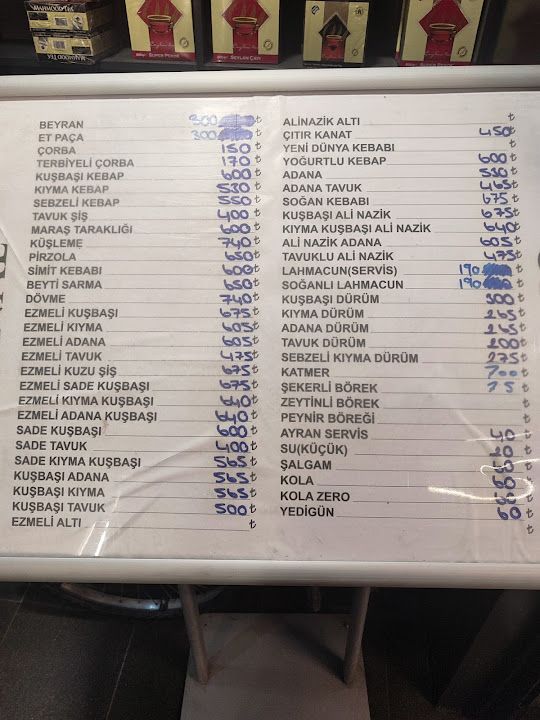 BEYRAN 300 ₺
ET PAÇA 300 ₺
ÇORBA 150 ₺
TERBİYELİ ÇORBA 170 ₺
KUŞBAŞI KEBAP 600 ₺
KIYMA KEBAP 530 ₺
SEBZELİ KEBAP 550 ₺
TAVUK ŞİŞ 400 ₺
MARAŞ TARAKLIĞI 600 ₺
KÜŞLEME 740 ₺
PİRZOLA 650 ₺
SİMİT KEBABI 600 ₺
BEYTİ SARMA 650 ₺
DÖVME 740 ₺
EZMELİ KUŞBAŞI 675 ₺
EZMELİ KIYMA 605 ₺
EZMELİ ADANA 605 ₺
EZMELİ TAVUK 475 ₺
EZMELİ KUZU ŞİŞ 675 ₺
EZMELİ SADE KUŞBAŞI 675 ₺
EZMELİ KIYMA KUŞBAŞI 640 ₺
EZMELİ ADANA KUŞBAŞI 640 ₺
SADE KUŞBAŞI 600 ₺
SADE TAVUK 400 ₺
SADE KIYMA KUŞBAŞI 565 ₺
KUŞBAŞI ADANA 565 ₺
KUŞBAŞI KIYMA 565 ₺
KUŞBAŞI TAVUK 500 ₺
EZMELİ ALTI ₺
ALİNAZİK ALTI ₺
ÇITIR KANAT 450 ₺
YENİ DÜNYA KEBABI ₺
YOĞURTLU KEBAP 600 ₺
ADANA 530 ₺
ADANA TAVUK 465 ₺
SOĞAN KEBABI 675 ₺
KUŞBAŞI ALİ NAZİK 675 ₺
KIYMA KUŞBAŞI ALİ NAZİK 640 ₺
ALİ NAZİK ADANA 605 ₺
TAVUKLU ALİ NAZİK 475 ₺
LAHMACUN(SERVİS) 190 ₺
SOĞANLI LAHMACUN 190 ₺
KUŞBAŞI DÜRÜM 300 ₺
KIYMA DÜRÜM 265 ₺
ADANA DÜRÜM 265 ₺
TAVUK DÜRÜM 200 ₺
SEBZELİ KIYMA DÜRÜM 275 ₺
KATMER 700 ₺
ŞEKERLİ BÖREK 75 ₺
ZEYTİNLİ BÖREK ₺
PEYNİR BÖREĞİ ₺
AYRAN SERVİS 40 ₺
SU(KÜÇÜK) ₺
ŞALGAM ₺
KOLA ₺
KOLA ZERO ₺
YEDİGÜN 60 ₺
₺